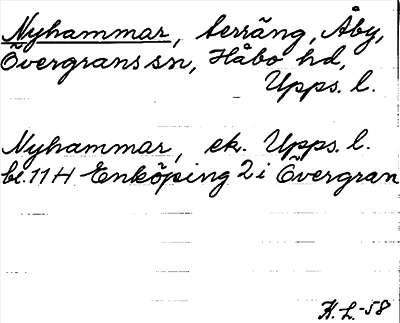 Nyhammar, terräng, Åby,
Övergrans sn, Håbo hd,
Upps. l.
Nyhammar, ek. Upps. l.
bl. 11 H Enköping 2 i Övergran
H. L. -58